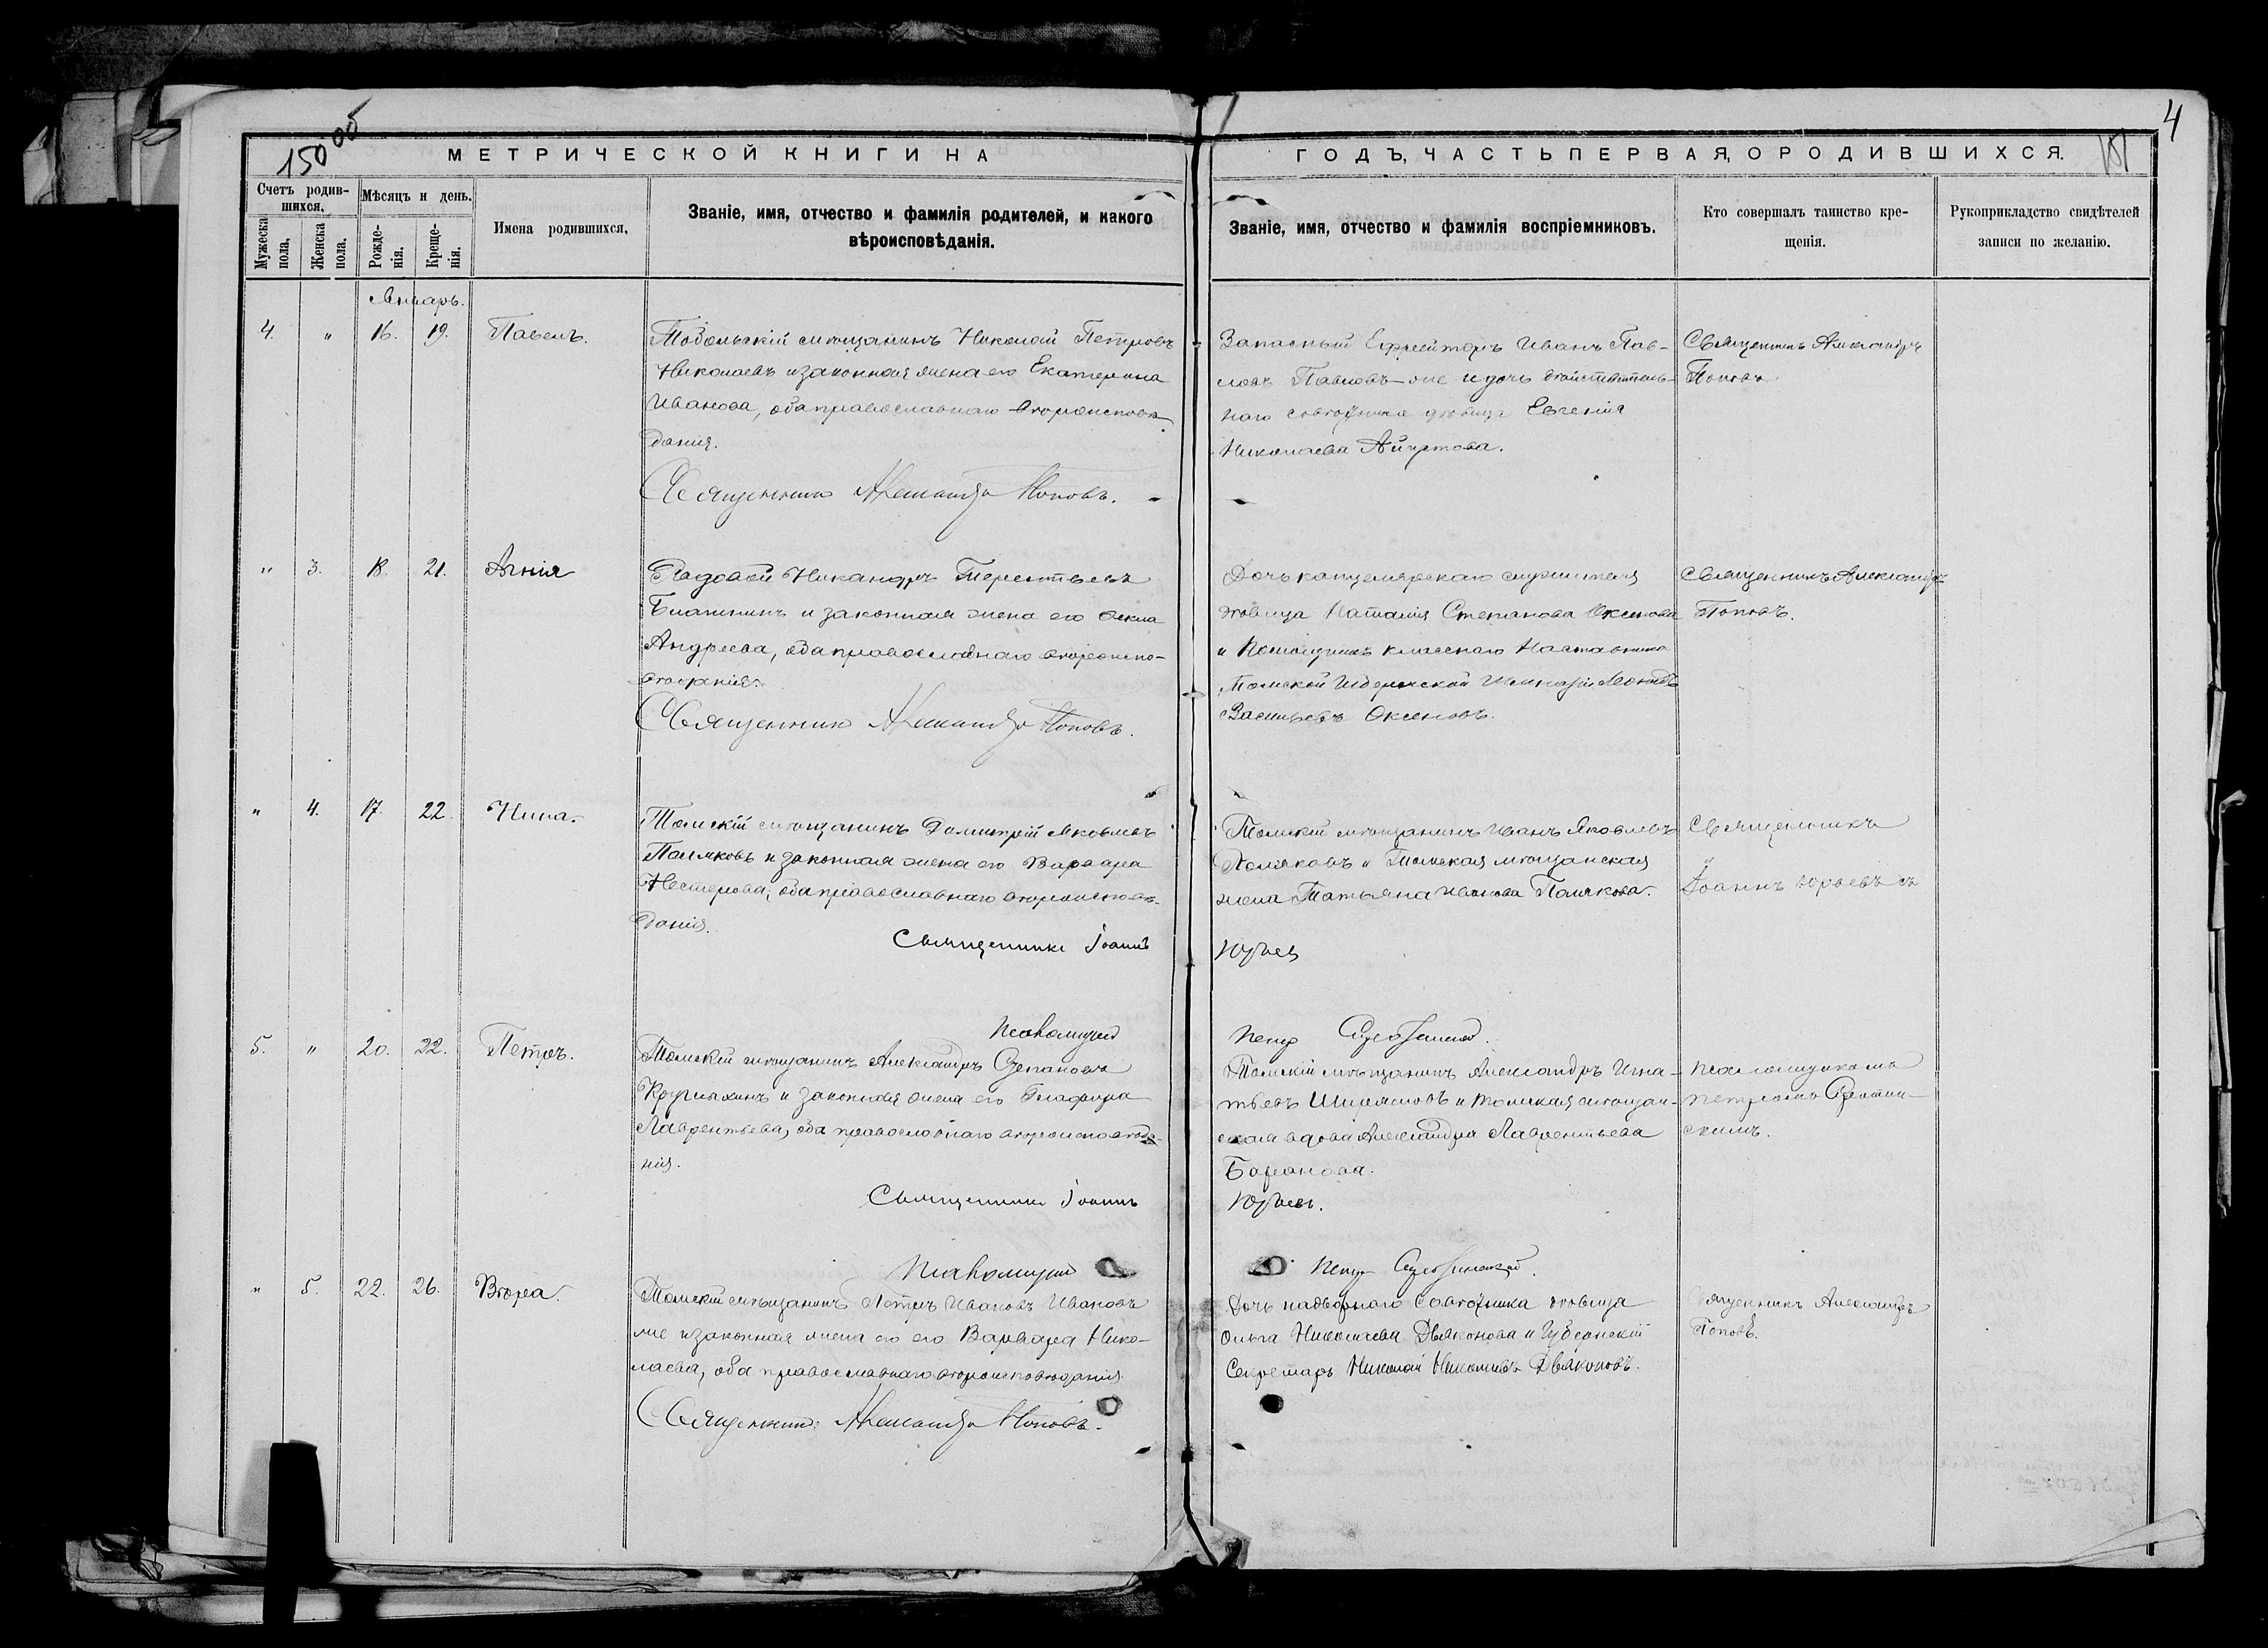 150 об
4
151
МЕТРИЧЕСКОЙ КНИГИ НА
ГОДЪ, ЧАСТЬ ПЕРВАЯ, О РОДИВШИХСЯ.
Счетъ родив-
шихся.
Мужеска
пола.
Женска
пола.
Мѣсяцъ и день.
Рожде-
нія.
Креще-
нія.
Имена родившихся.
Званіе, имя, отчество и фамилія родителей, и какого
вѣроисповѣданія.
Званіе, имя, отчество и фамилія воспріемниковъ.
Кто совершалъ таинство кре-
щенія.
Рукоприкладство свидѣтелей
записи по желанію.
Январь.
4. " 16. 19. Павелъ.
Тобольскій мѣщанинъ Николай Петровъ
Николаевъ и законная жена его Екатерина
Иванова, оба православнаго вѣроисповѣ-
данія.
Священникъ Александръ Поповъ.
Запасный Ефрейторъ Иванъ Пав-
ловъ Павловъ-же и дочь дѣйствитель-
наго совѣтника дѣвица Евгенія
Николаева
Священникъ Александръ
Поповъ.
" 3. 18. 21. Агнія
Рядовой Никандръ Терентьевъ
и законная жена его Ѳекла
Андреева, оба православнаго вѣроиспо-
вѣданія.
Священникъ Александръ Поповъ.
Дочь канцелярскаго служителя
дѣвица Наталия Степанова Оксенова
и Помощникъ класснаго Наставника
Томской Губернской Гимназіи
Васильевъ Оксеновъ.
Священникъ Александръ
Поповъ.
" 4. 17. 22. Нина.
Томскій мѣщанинъ Димитрій Яковлевъ
Поляковъ и законная жена его Варвара
Нестерова, оба православнаго вѣроисповѣ-
данія.
Священникъ Іоаннъ
Юрьевъ
Томскій мѣщанинъ Иванъ Яковлевъ
Поляковъ и Томская мѣщанская
жена Татьяна Иванова Полякова.
Священникъ
Іоаннъ Юрьевъ съ
Псаломщикъ
Петръ
5. " 20. 22. Петръ.
Томскій мѣщанинъ Александръ Степановъ
и законная жена его Глафира
Лаврентьева, оба православнаго вѣроисповѣда-
нія.
Священникъ Іоаннъ
Юрьевъ.
Томскій мѣщанинъ Александръ Игна-
тьевъ и томская мѣщан-
ская вдова Александра Лаврентьева
Баранова.
псаломщикомъ
Петромъ
Псаломщикъ
Петръ
" 5. 22. 26. Вѣра.
Томскій мѣщанинъ Петръ Ивановъ Ивановъ
же и законная жена его его Варвара Нико-
лаева, оба православнаго вѣроисповѣданія.
Священникъ Александръ Поповъ.
Дочь надворнаго совѣтника дѣвица
Ольга Николаева Дьяконова и Губернскій
Секретарь Николай Николаевъ Дьяконовъ.
Священникъ Александръ
Поповъ.